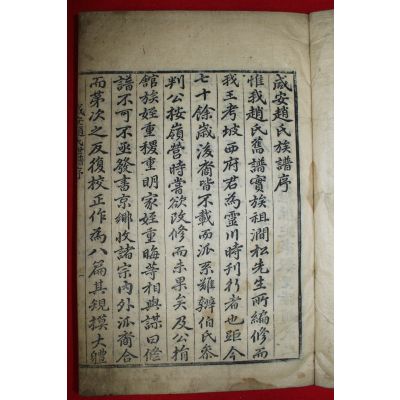 咸安趙氏族譜序
惟我趙氏舊譜實族祖澗松先生所編修而
我王考坡西府君爲靈川時刊行者也距今
七十餘歲後裔皆不載而派系難辨伯氏參
判公按嶺營時嘗欲改修而未果矣及公捐
館族姪重稷重明家姪重晦等相與謀曰修
譜不可不亟發書京鄉收諸宗內外派裔合
而第次之反復校正作為八篇其規模大軆
咸安趙氏世譜序